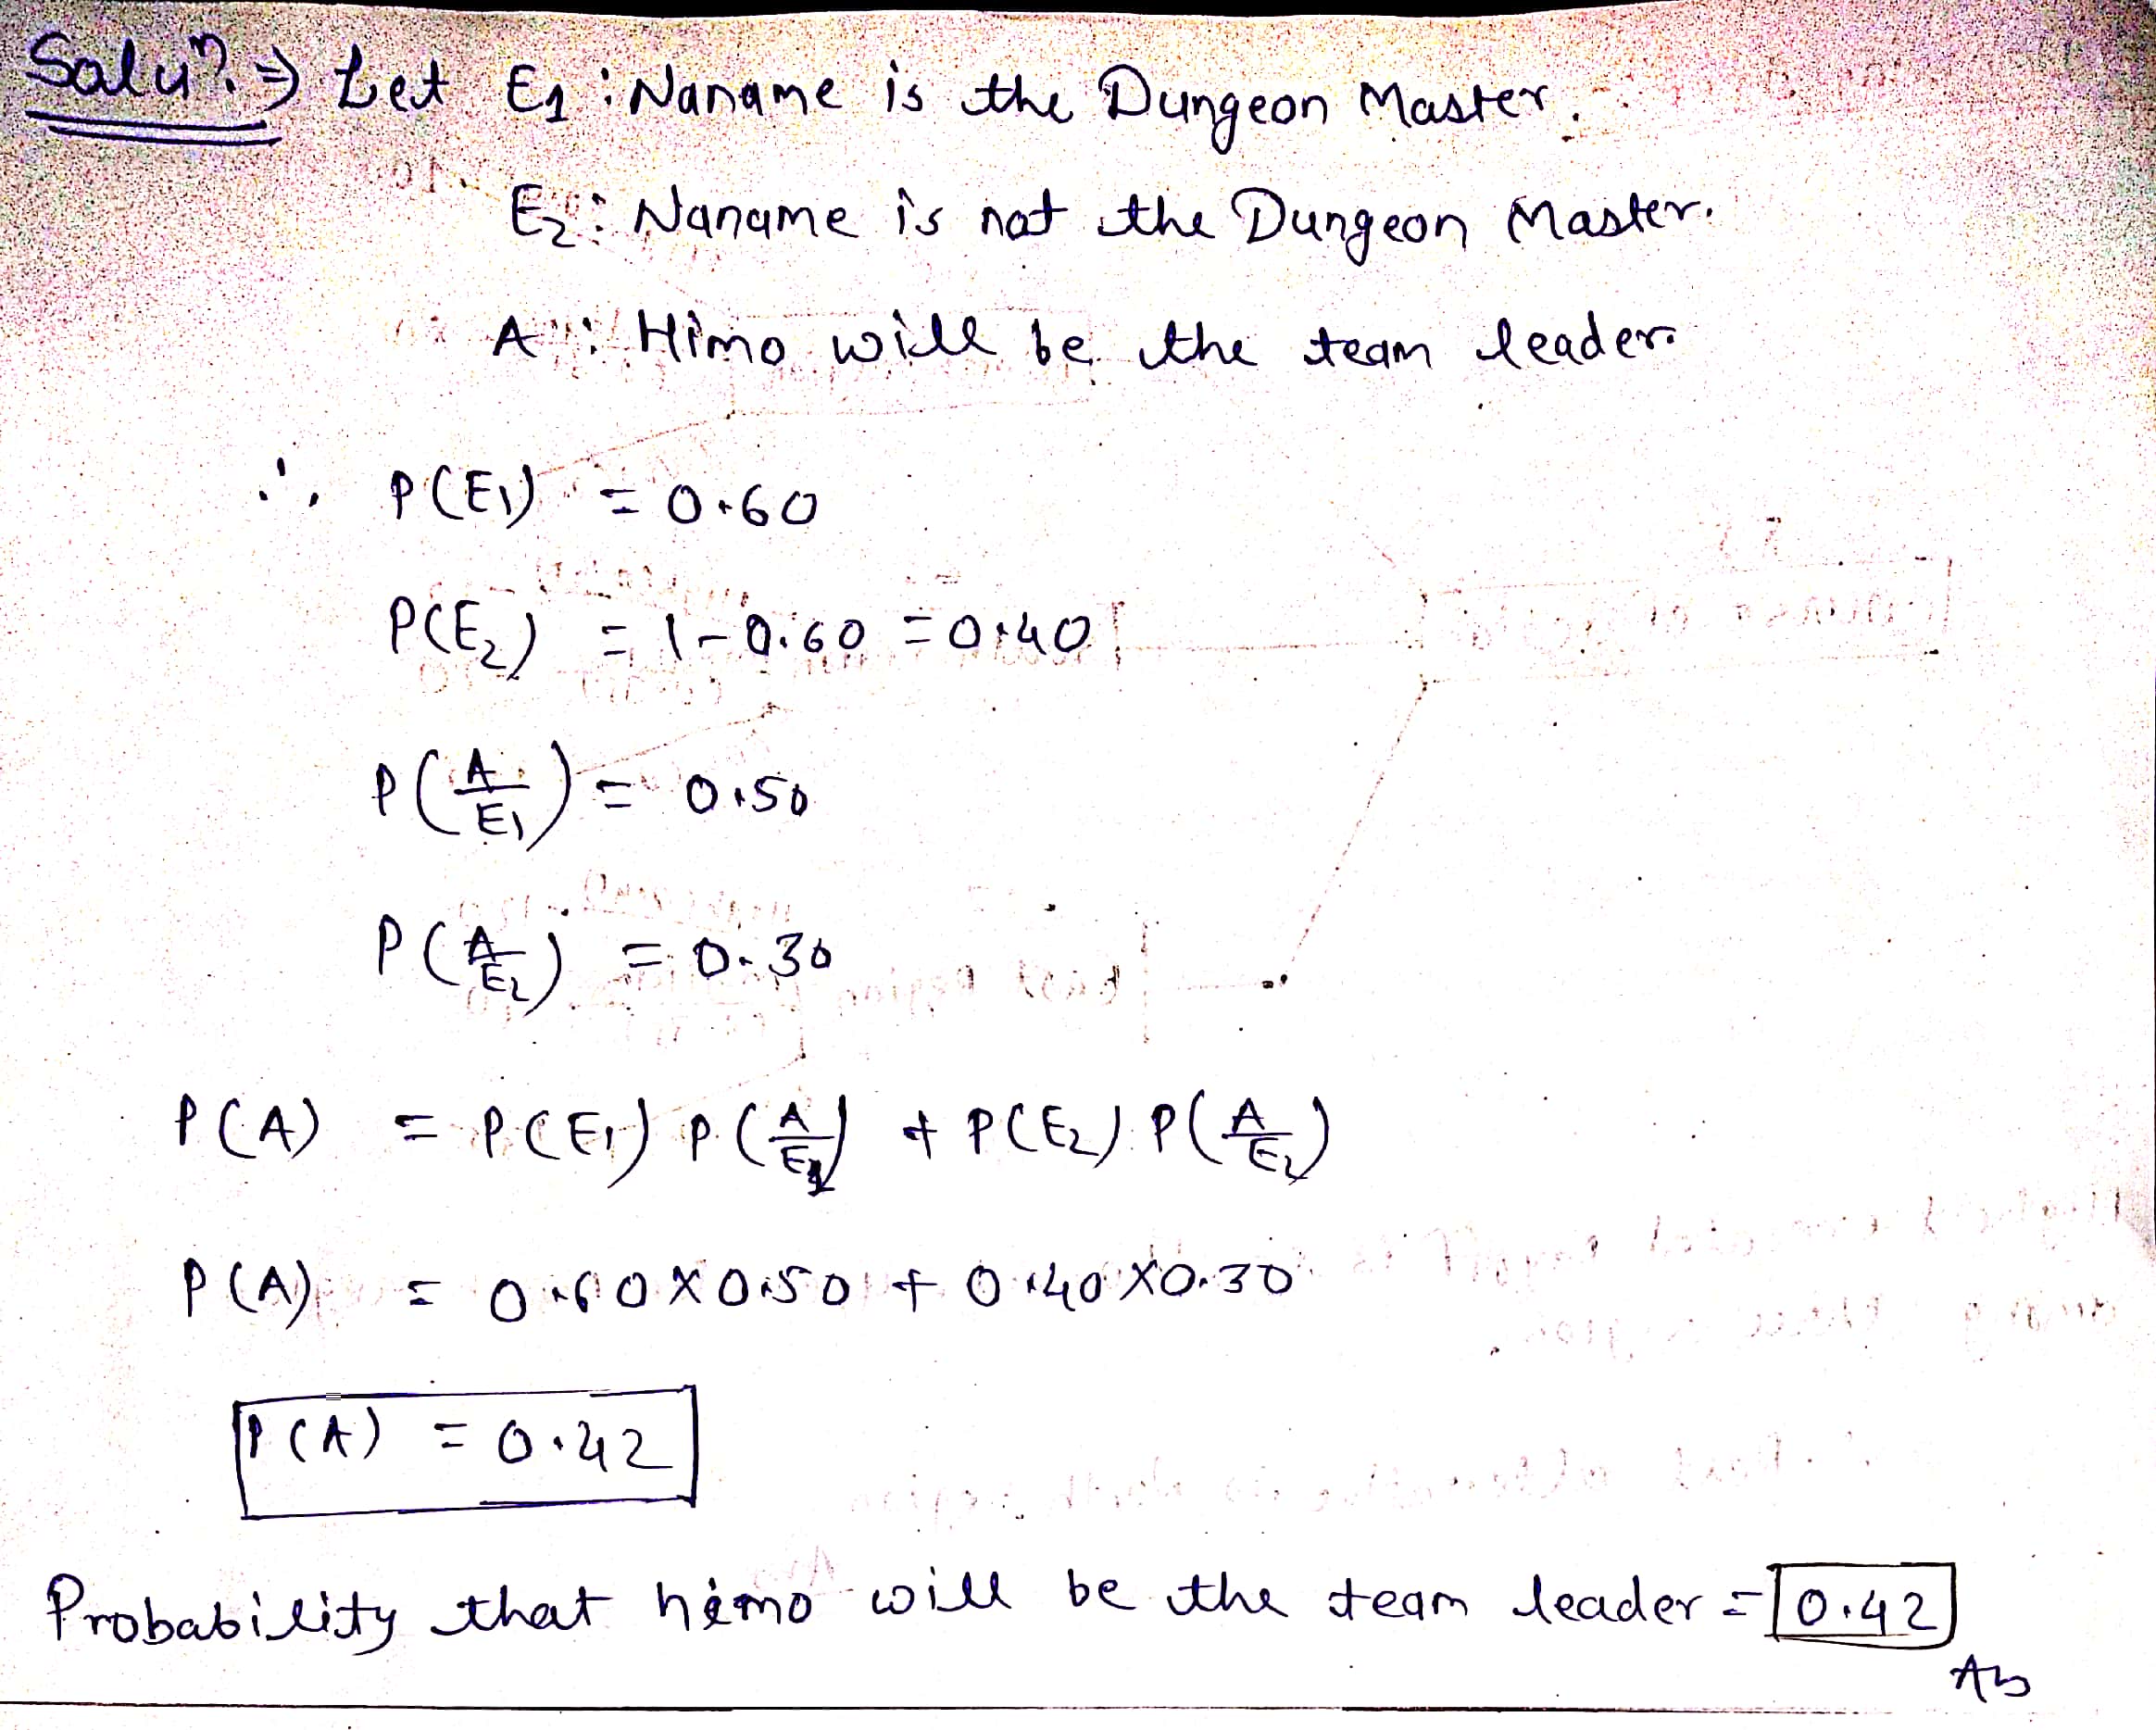 Soluⁿ. ⇒ Let E1 : Naname is the Dungeon Master.
E2 : Naname is not the Dungeon Master.
A : Himo will be the team leader.
∴ P(E1) = 0.60
P(E2) = 1 - 0.60 = 0.40
P(A/E1) = 0.50
P(A/E2) = 0.30
P(A) = P(E1) P(A/E1) + P(E2) P(A/E2)
P(A) = 0.60 X 0.50 + 0.40 X 0.30
P(A) = 0.42
Probability that himo will be the team leader = 0.42
Ans